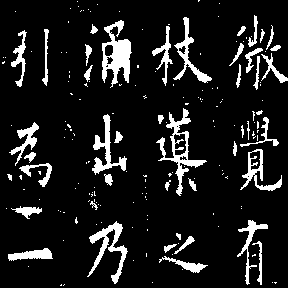 微覺有
杖導之
涌出乃
引為二